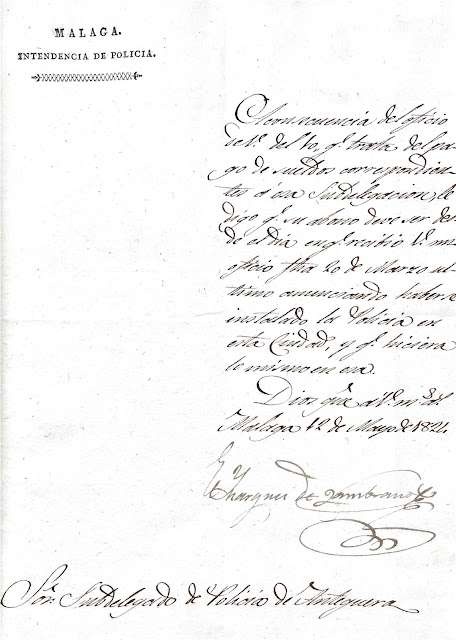 MALAGA.
INTENDENCIA DE POLICIA.
A consecuencia del oficio
de V. del 10, q.e trata del pa-
go de sueldos correspondien-
tes á esa Subdelegacion, le
digo q.e su abono deve ser des-
de el dia en q.e recibio V. mi
oficio fha 20 de Marzo ul-
timo anunciando haberse
instalado la Policia en
esta Ciudad, y q.e hiciera
lo mismo en esa.
Dios gũe á V. m.s a.s
Malaga 12 de Mayo de 1824.
El Marques de Zambrano
S.or Subdelegado de Policia de Antequera